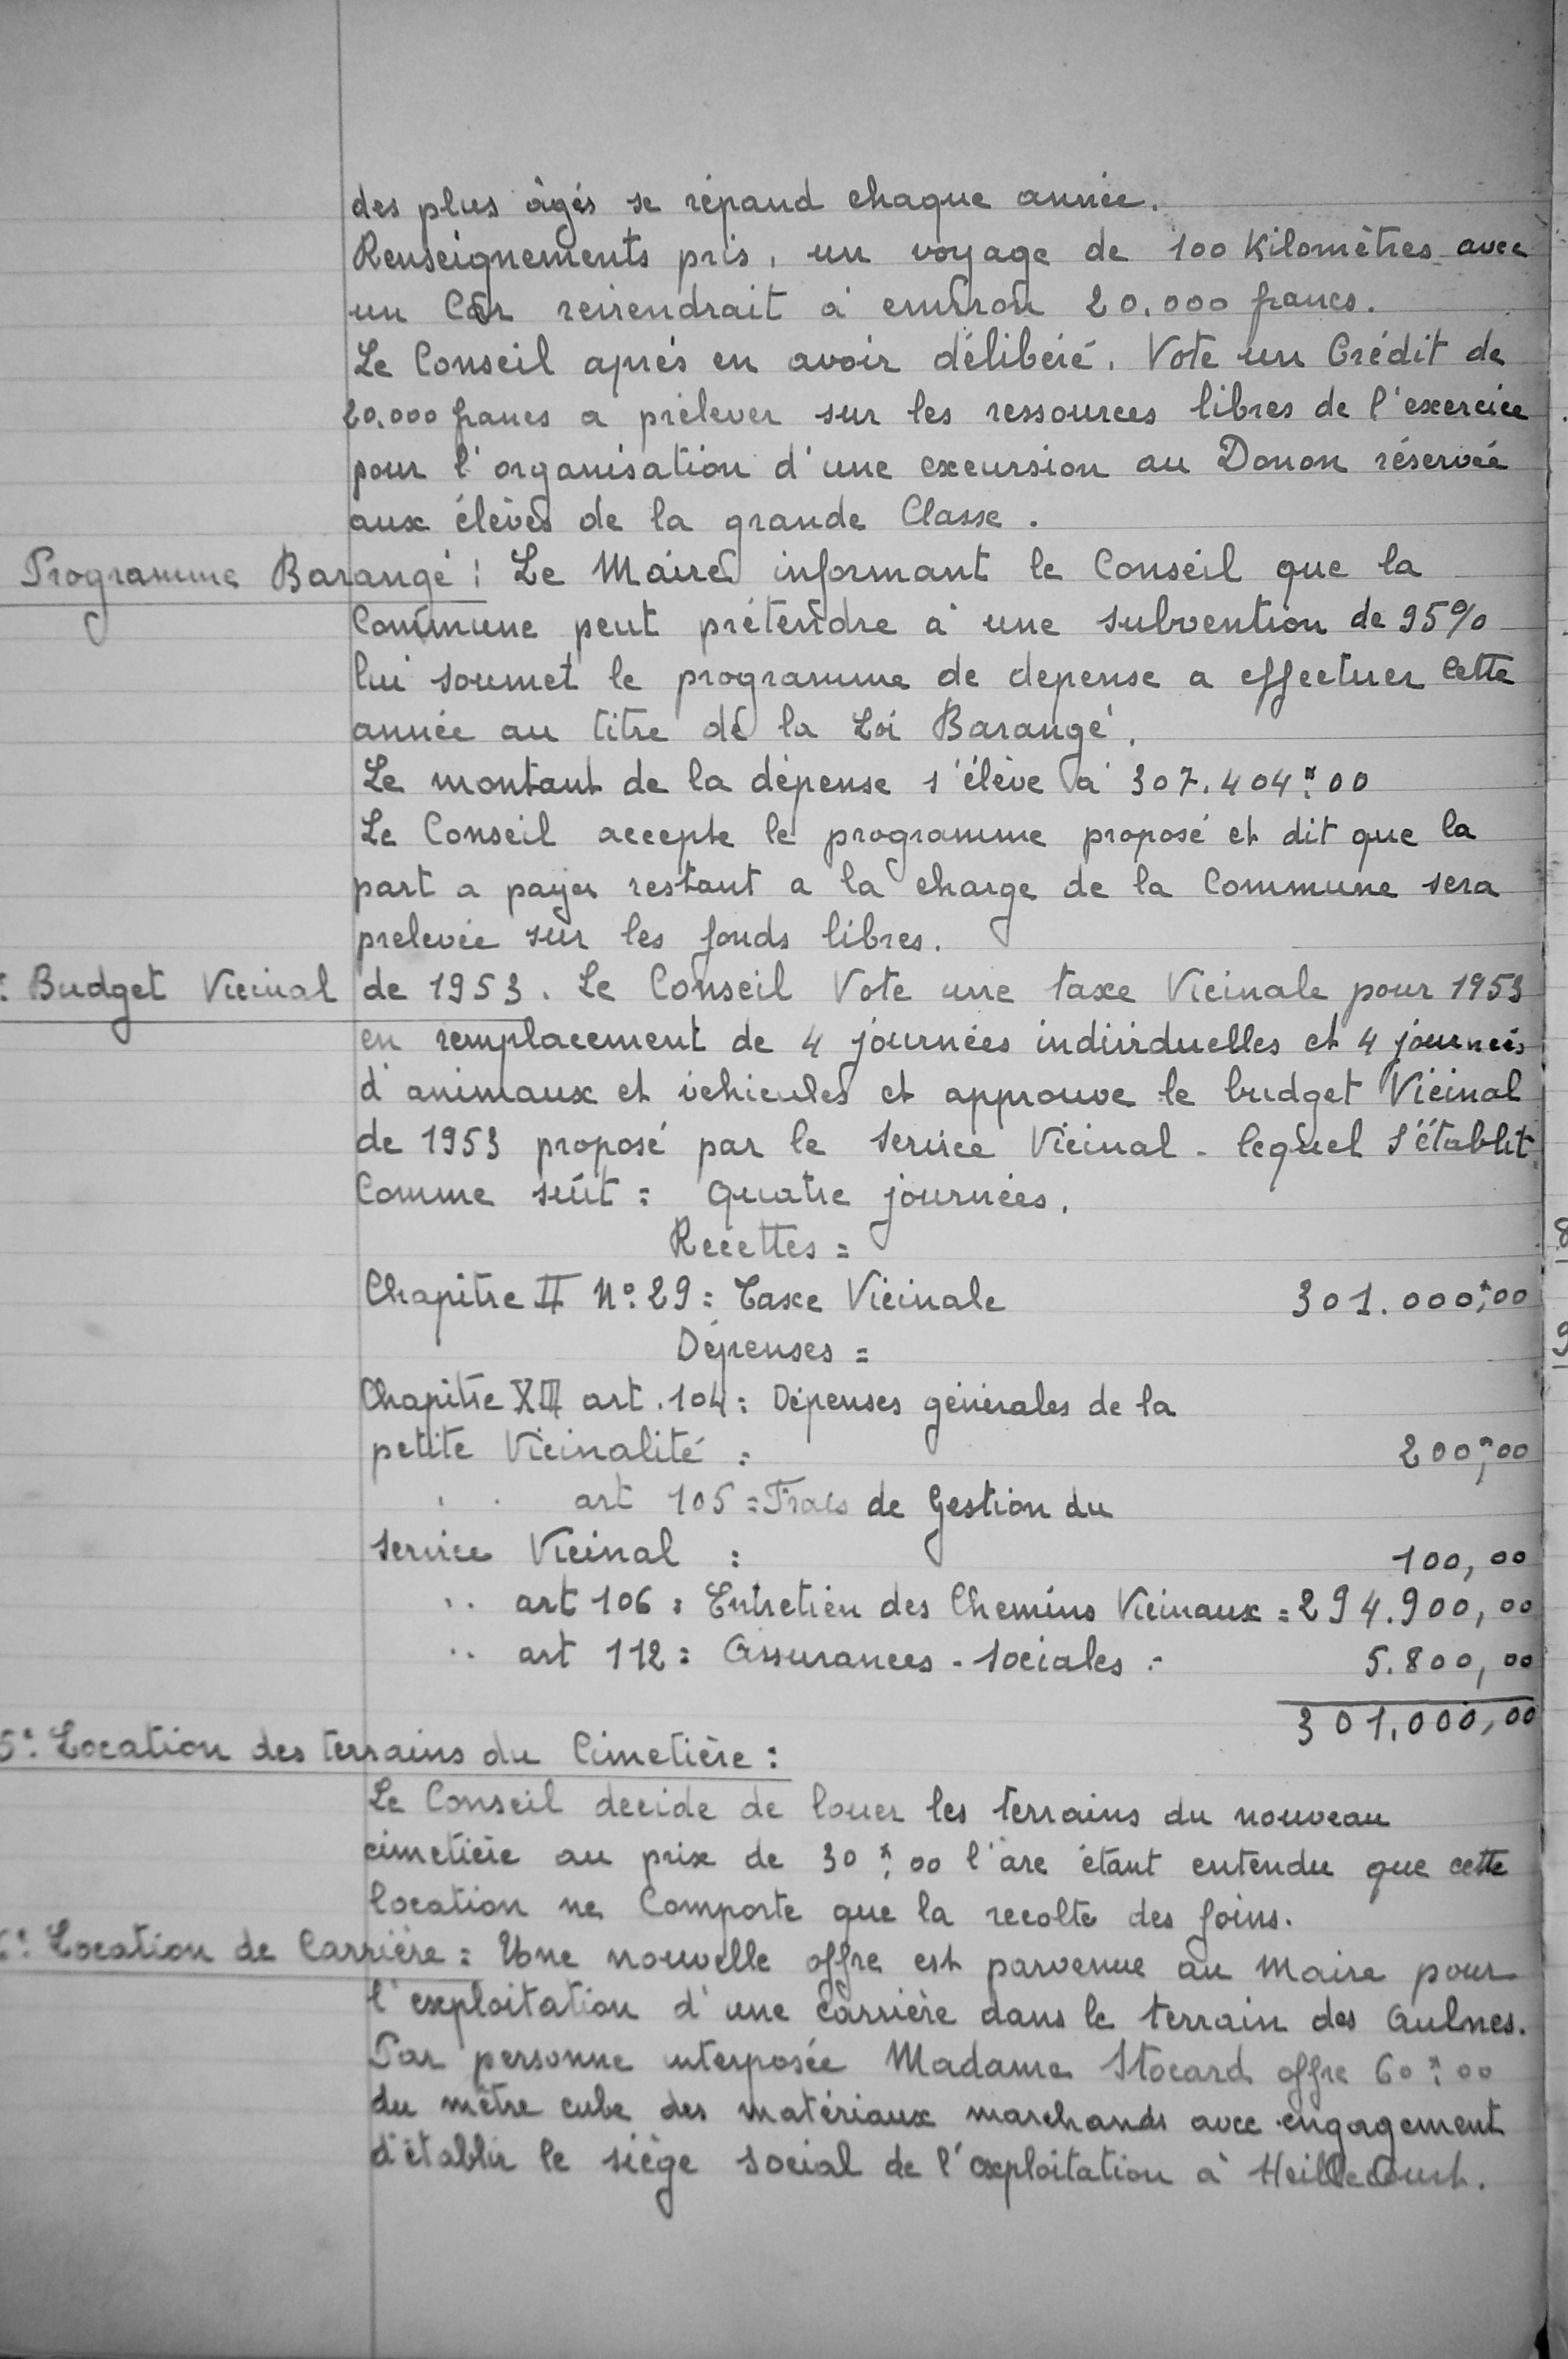 des plus âgés se répand chaque année.
Renseignements pris, un voyage de 100 Kilomètres avec
un Car reviendrait à environ 20.000 francs.
Le Conseil aprés en avoir délibéré. Vote un Crédit de
20.000 francs a prélever sur les ressources libres de l'exercice
pour l'organisation d'une excursion au Donon réservée
aux élèves de la grande Classe.
Programme Barangé : Le Maire informant le Conseil que la
Commune peut prétendre à une subvention de 95%
lui soumet le programme de depense a effectuer Cette
année au titre de la Loi Barangé.
Le montant de la dépense s'élève à 307.404,00
Le Conseil accepte le programme proposé et dit que la
part a payer restant a la charge de la Commune sera
prelevée sur les fonds libres.
: Budget Vicinal de 1953. Le Conseil Vote une taxe Vicinale pour 1953
en remplacement de 4 journées individuelles et 4 journées
d'animaux et véhicules et approuve le budget Vicinal
de 1953 proposé par le Service Vicinal - lequel s'établit
Comme suit : Quatre journées.
Recettes =
Chapitre II N° 29 : Taxe Vicinale 301.000,00
Dépenses =
Chapitre XIII art. 104 : Dépenses générales de la
petite Vicinalité : 200,00
" art 105 = Frais de Gestion du
Service Vicinal : 100,00
" art 106 : Entretien des Chemins Vicinaux = 294.900,00
" art 112 : Assurances - Sociales :- 5.800,00
301.000,00
5° Location des terrains du Cimetière :
Le Conseil decide de louer les terrains du nouveau
cimetière au prix de 30 F,00 l'are étant entendu que cette
location ne Comporte que la recolte des foins.
6° Location de Carrière : Une nouvelle offre est parvenue au Maire pour
l'exploitation d'une Carrière dans le terrain des Aulnes.
Par personne interposée Madame Stocard offre 60 F,00
du mètre cube des matériaux marchands avec engagement
d'établir le siège social de l'exploitation à Heillecourt.
8
9